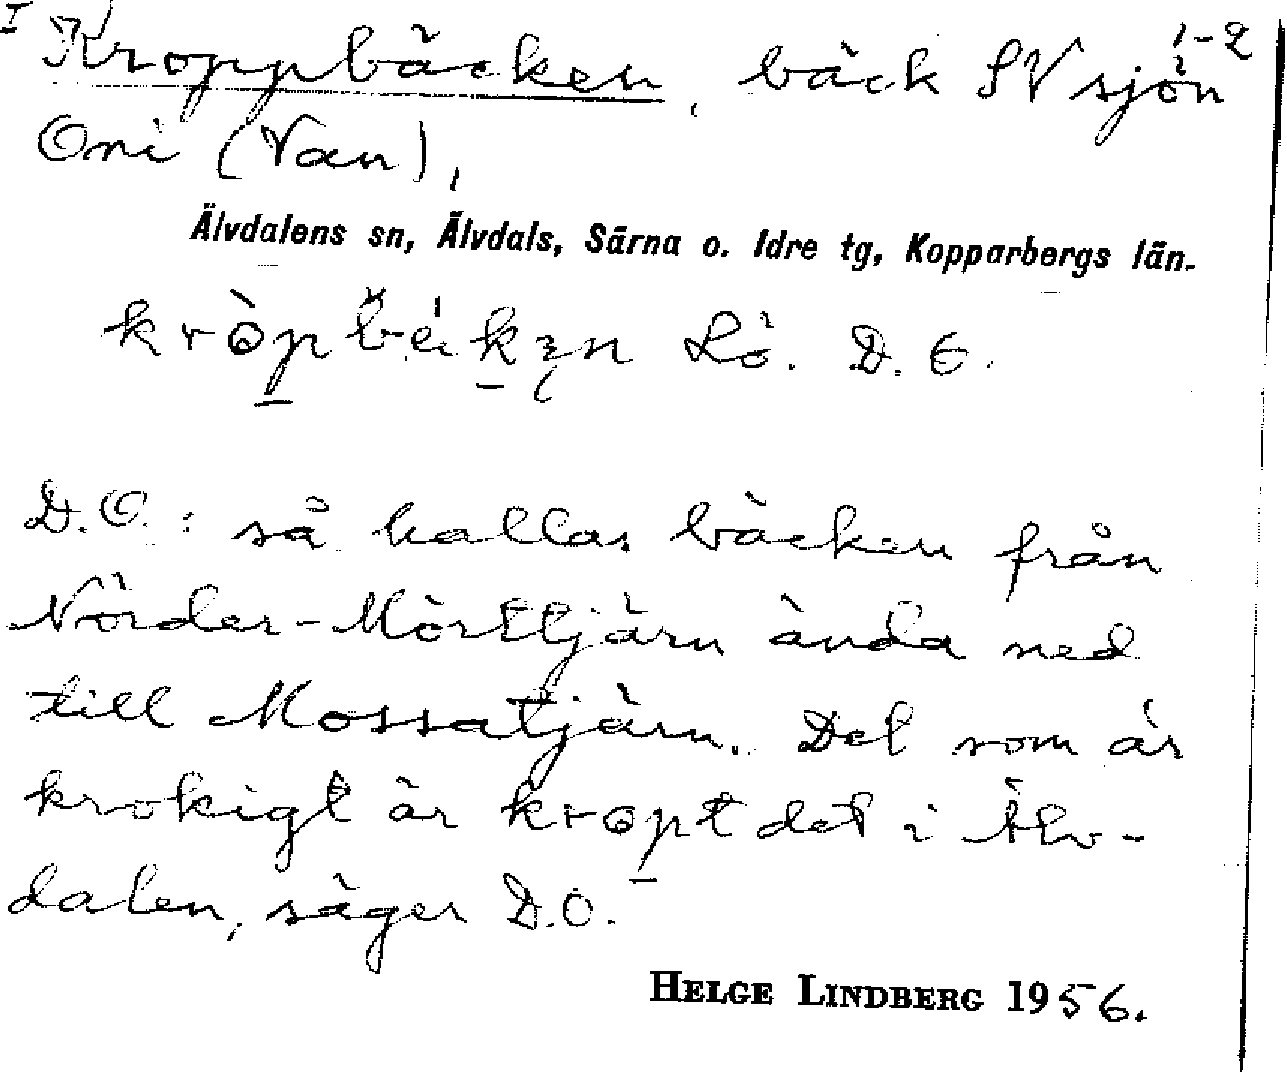 I Kroppbäcken, bäck SV sjön 1-2
Oni (Van),
Älvdalens sn, Älvdals, Särna o. Idre tg, Kopparbergs län.
Lö. D. O.
D.O.: så kallas bäcken från
Nörder-Mörttjärn ända ned
till Mossatjärn. Det som är
krokigt är kropt det i Älv-
dalen, säger D.O.
HELGE LINDBERG 1956.